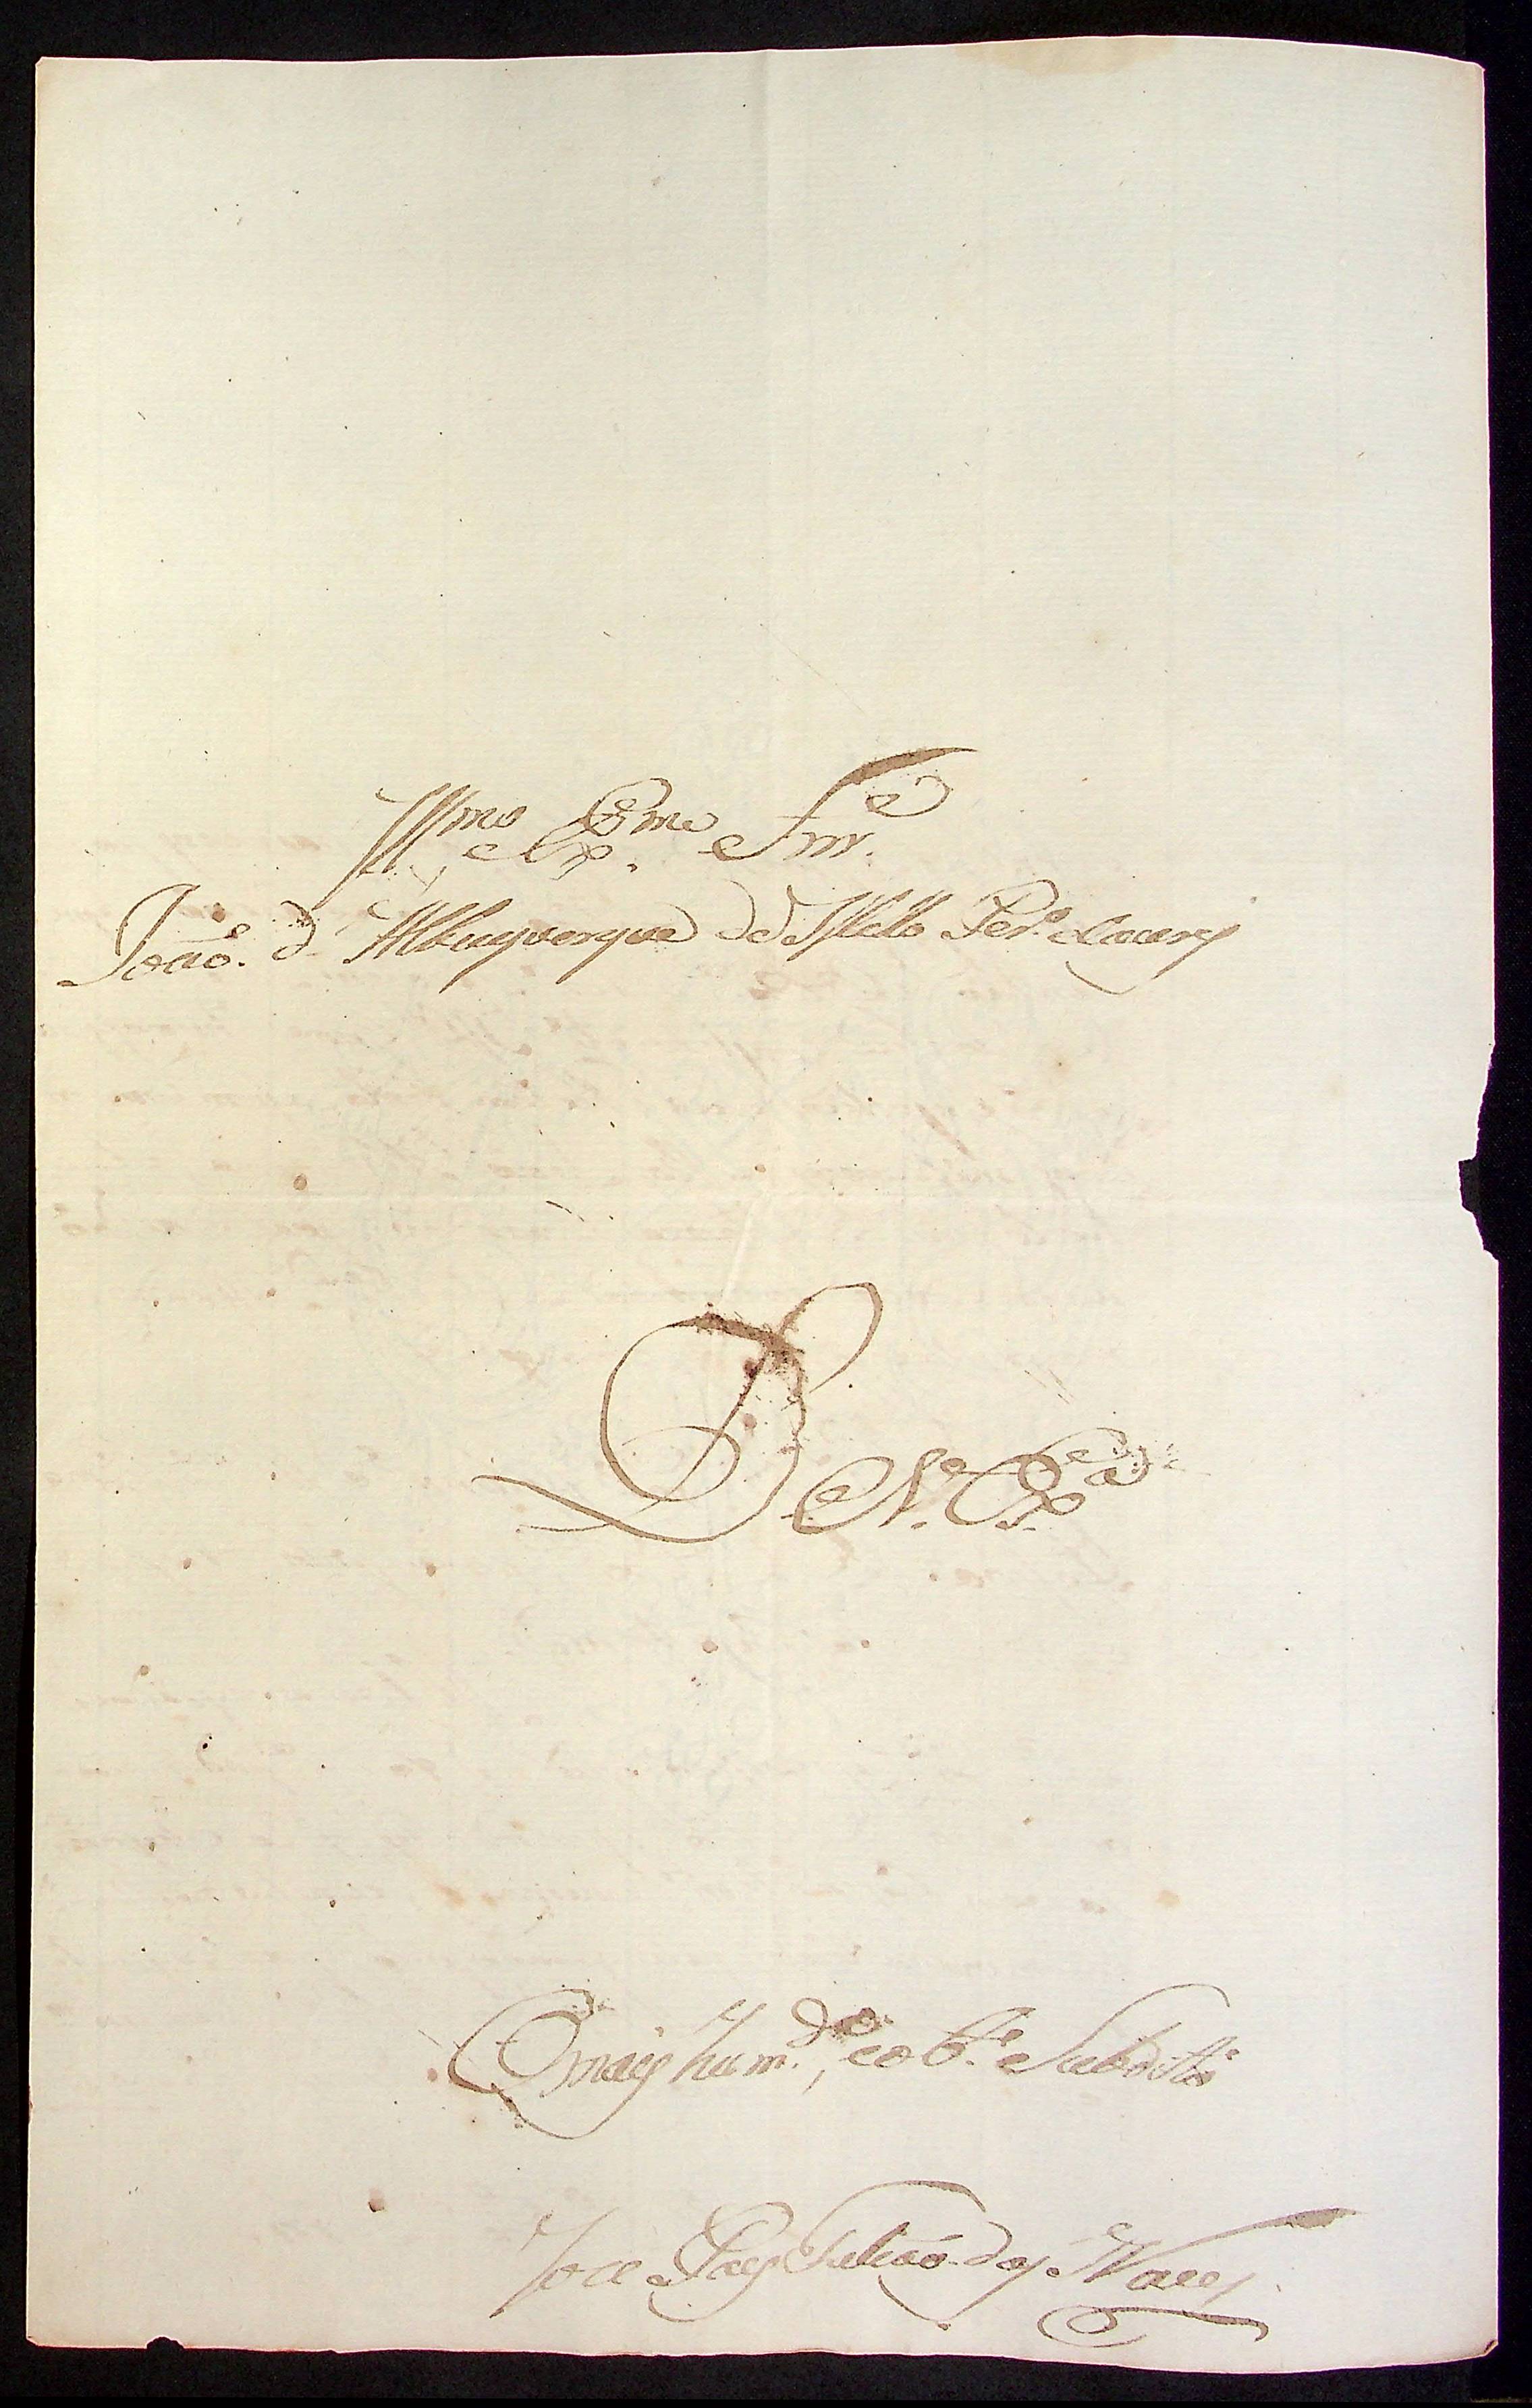 Illmo. Exmo. Snr.
João. d' Albuquerque de Mello Per.ª Caceres
De V. Exª.
O mais hum.de, e ob.e Subdito
Joze Paes Falcão das Neves